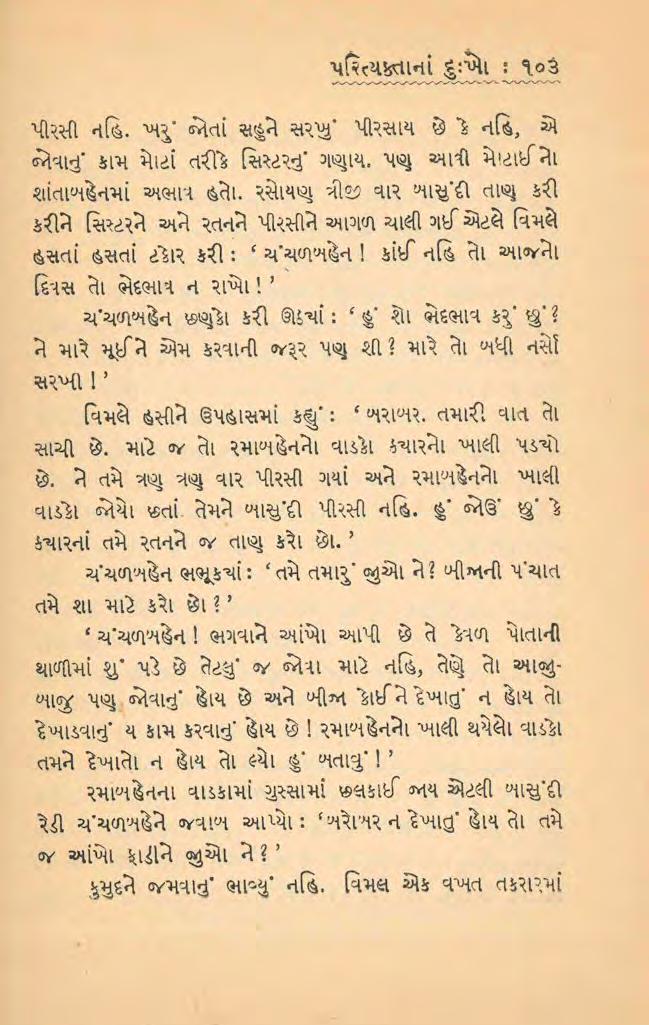 પરિત્યક્તાનાં દુઃખો : ૧૦૩
પીરસી નહિ. ખરું જોતાં સહુને સરખું પીરસાય છે કે નહિ, એ
જોવાનું કામ મોટાં તરીકે સિસ્ટરનું ગણાય. પણ આવી મોટાઈનો
શાંતાબહેનમાં અભાવ હતો. રસોયણ ત્રીજી વાર બાસુંદી તાણ કરી
કરીને સિસ્ટરને અને રતનને પીરસીને આગળ ચાલી ગઈ એટલે વિમલે
હસતાં હસતાં ટકોર કરી : ‘ ચંચળબહેન ! કાંઈ નહિ તો આજનો
દિવસ તો ભેદભાવ ન રાખો ! ’
ચંચળબહેન છણકો કરી ઊઠ્યાં : ‘ હું શો ભેદભાવ કરું છું ?
ને મારે મૂઈને એમ કરવાની જરૂર પણ શી ? મારે તો બધી નર્સો
સરખી ! ’
વિમલે હસીને ઉપહાસમાં કહ્યું : ‘ બરાબર. તમારી વાત તો
સાચી છે. માટે જ તો રમાબહેનનો વાડકો ક્યારનો ખાલી પડ્યો
છે. ને તમે ત્રણ ત્રણ વાર પીરસી ગયાં અને રમાબહેનનો ખાલી
વાડકો જોયો છતાં તેમને બાસુંદી પીરસી નહિ. હું જોઉં છું કે
ક્યારનાં તમે રતનને જ તાણ કરો છો. ’
ચંચળબહેન ભભૂક્યાં : ‘ તમે તમારું જીઓ ને ? બીજાની પંચાત
તમે શા માટે કરો છો ? ’
‘ ચંચળબહેન ! ભગવાને આંખો આપી છે તે કેવળ પોતાની
થાળીમાં શું પડે છે તેટલું જ જોવા માટે નહિ, તેણે તો આજુ-
બાજુ પણ જોવાનું હોય છે અને બીજા કોઈને દેખાતું ન હોય તો
દેખાડવાનું ય કામ કરવાનું હોય છે ! રમાબહેનનો ખાલી થયેલો વાડકો
તમને દેખાતો ન હોય તો લ્યો હું બતાવું ! ’
રમાબહેનના વાડકામાં ગુસ્સામાં છલકાઈ જાય એટલી બાસુંદી
રેડી ચંચળબહેને જવાબ આપ્યો : ‘ બરોબર ન દેખાતું હોય તો તમે
જ આંખો ફાડીને જીઓ ને ? ’
કુમુદને જમવાનું ભાવ્યું નહિ. વિમલ એક વખત તકરારમાં